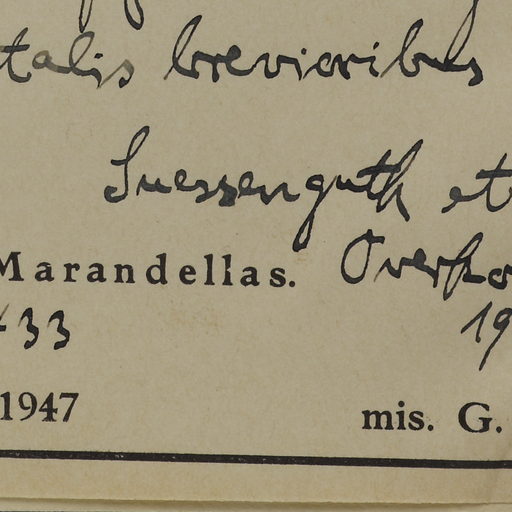 talis brevioribus
Suessenguth et
Marandellas. Overko
433 19
1947 mis. G.